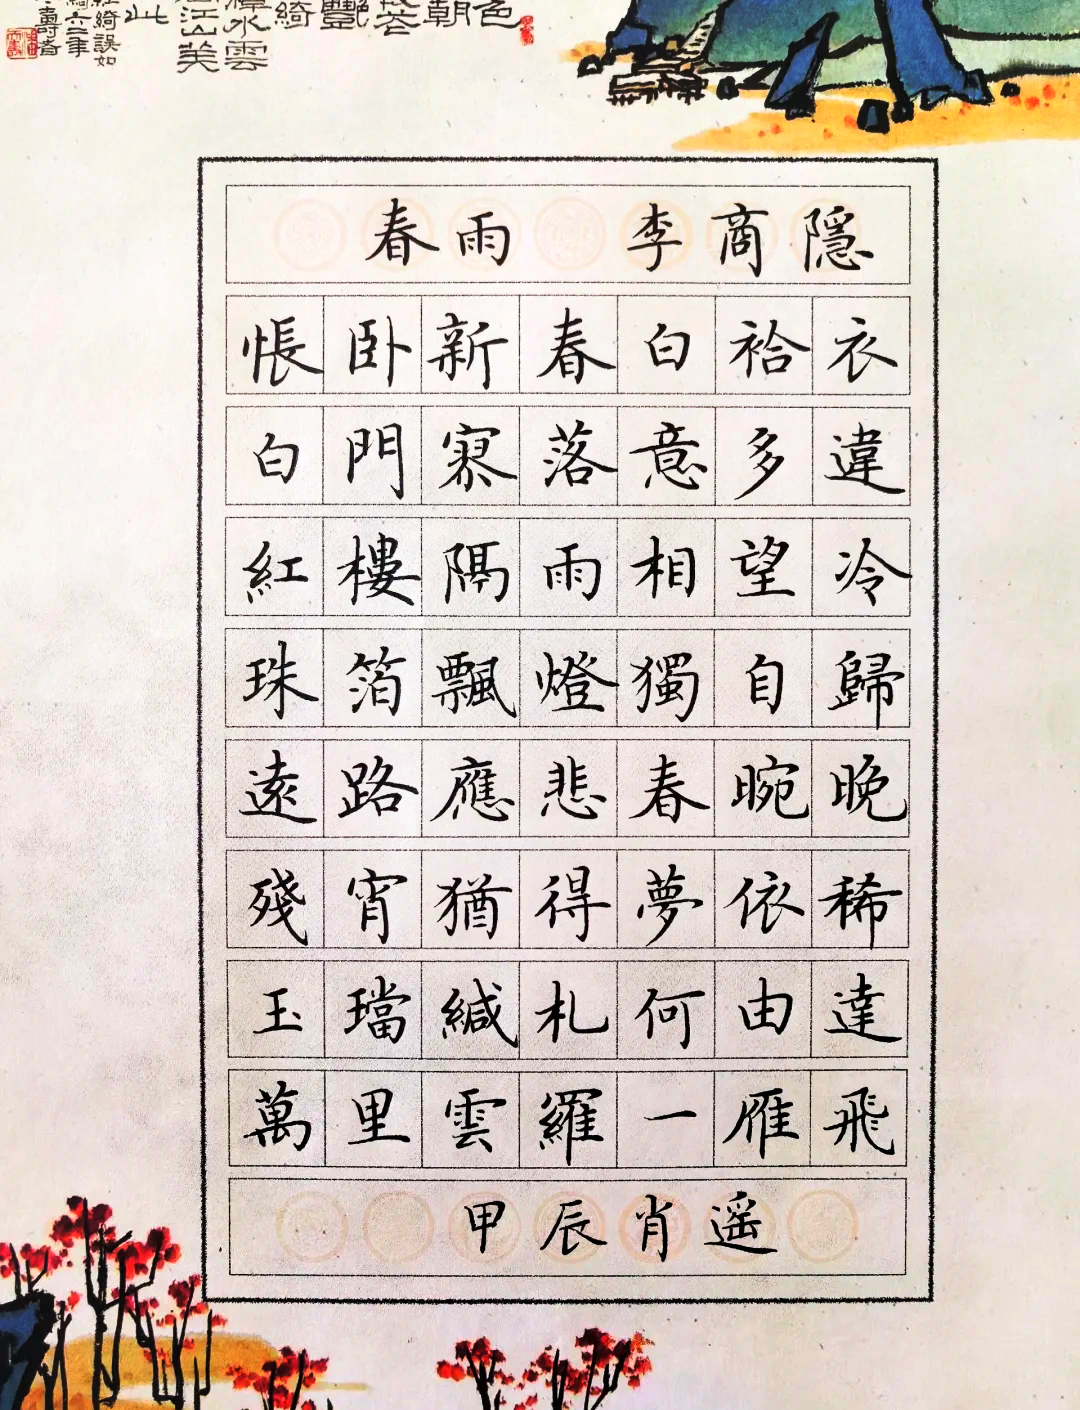 春雨 李商隱
悵卧新春白袷衣
白門寥落意多違
紅樓隔雨相望冷
珠箔飄燈獨自歸
遠路應悲春晼晚
殘宵猶得夢依稀
玉璫緘札何由達
萬里雲羅一雁飛
甲辰肖遥